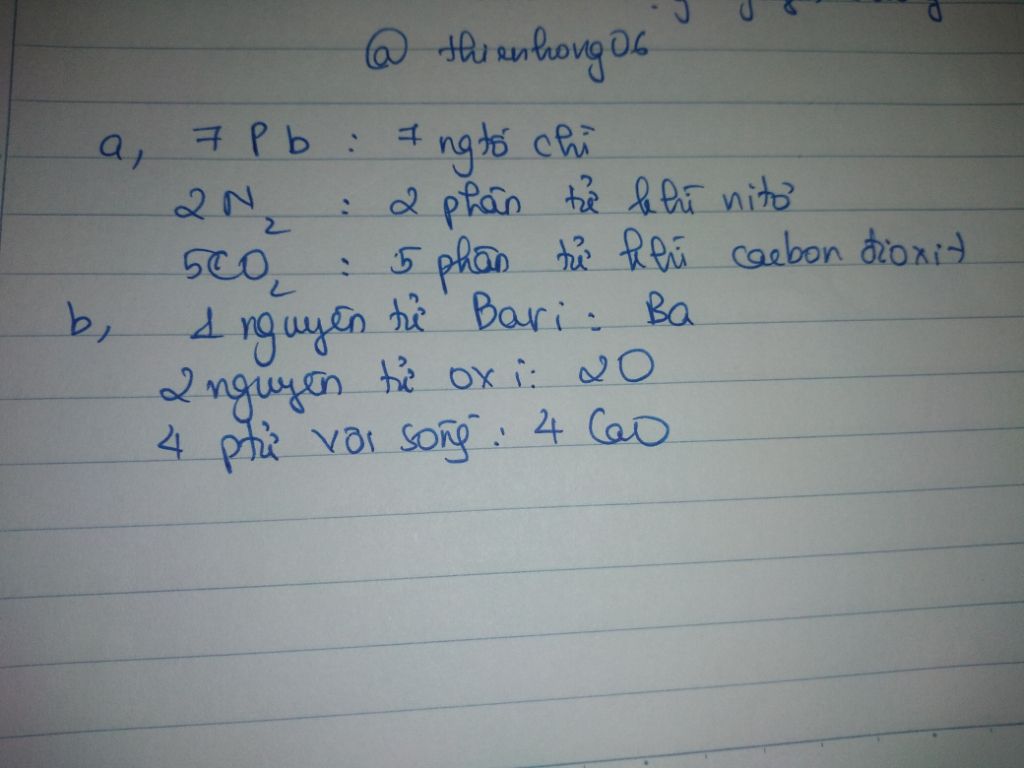 @ thienhong06
a, 7 Pb : 7 ngtố chì
2N₂ : 2 phân tử khí nitơ
5CO₂ : 5 phân tử khí cacbon đioxit
b, 1 nguyên tử Bari : Ba
2 nguyên tử oxi: 2O
4 ptử vôi sống : 4 CaO